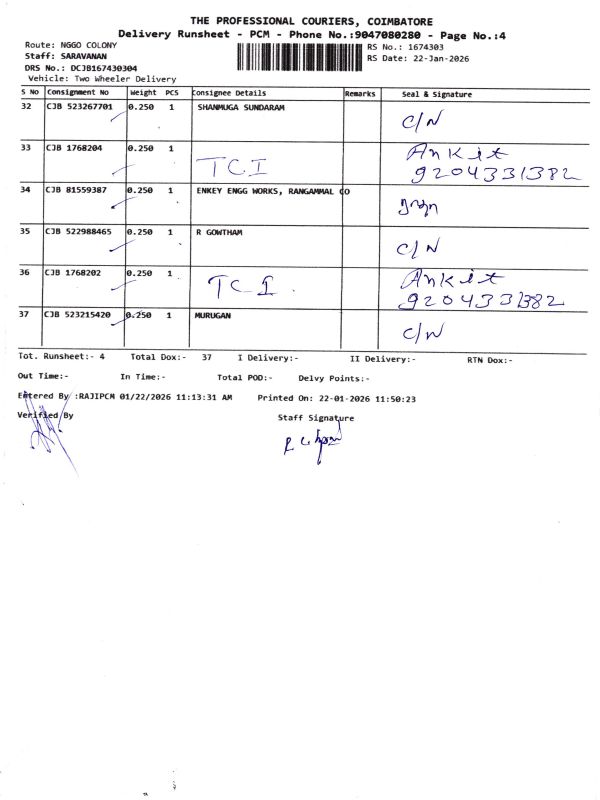 THE PROFESSIONAL COURIERS, COIMBATORE
Delivery Runsheet - PCM - Phone No.:9047080280 - Page No.:4
Route: NGGO COLONY
RS No.: 1674303
Staff: SARAVANAN
RS Date: 22-Jan-2026
DRS No.: DCJB167430304
Vehicle: Two Wheeler Delivery
S No Consignment No Weight PCS Consignee Details Remarks Seal & Signature
32 CJB 523267701 0.250 1 SHANMUGA SUNDARAM C/N
33 CJB 1768204 0.250 1 TCI Ankit 9204331382
34 CJB 81559387 0.250 1 ENKEY ENGG WORKS, RANGAMMAL CO
35 CJB 522988465 0.250 1 R GOWTHAM C/N
36 CJB 1768202 0.250 1 TCI Ankit 9204331382
37 CJB 523215420 0.250 1 MURUGAN C/N
Tot. Runsheet:- 4 Total Dox:- 37 I Delivery:- II Delivery:- RTN Dox:-
Out Time:- In Time:- Total POD:- Delvy Points:-
Entered By :RAJIPCM 01/22/2026 11:13:31 AM Printed On: 22-01-2026 11:50:23
Verified By Staff Signature